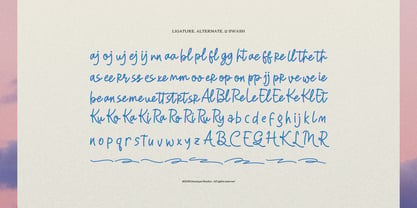 LIGATURE, ALTERNATE, & SWASH
aj oj uj ej ij nn aa bl pl fl gg ht ae ff re ll the th
as ee rr ss es xe mm oo er op on pp ij pr ve we ie
be an se me ve tt st rt sr Al Bl Re Le El Ee Ke Kl Et
Ku Ko Ka Ki Ra Ro Ri Ru Ry a b c d e f g h i j k l m
n o p q r s t u v w x y z A B C E G H K L M R